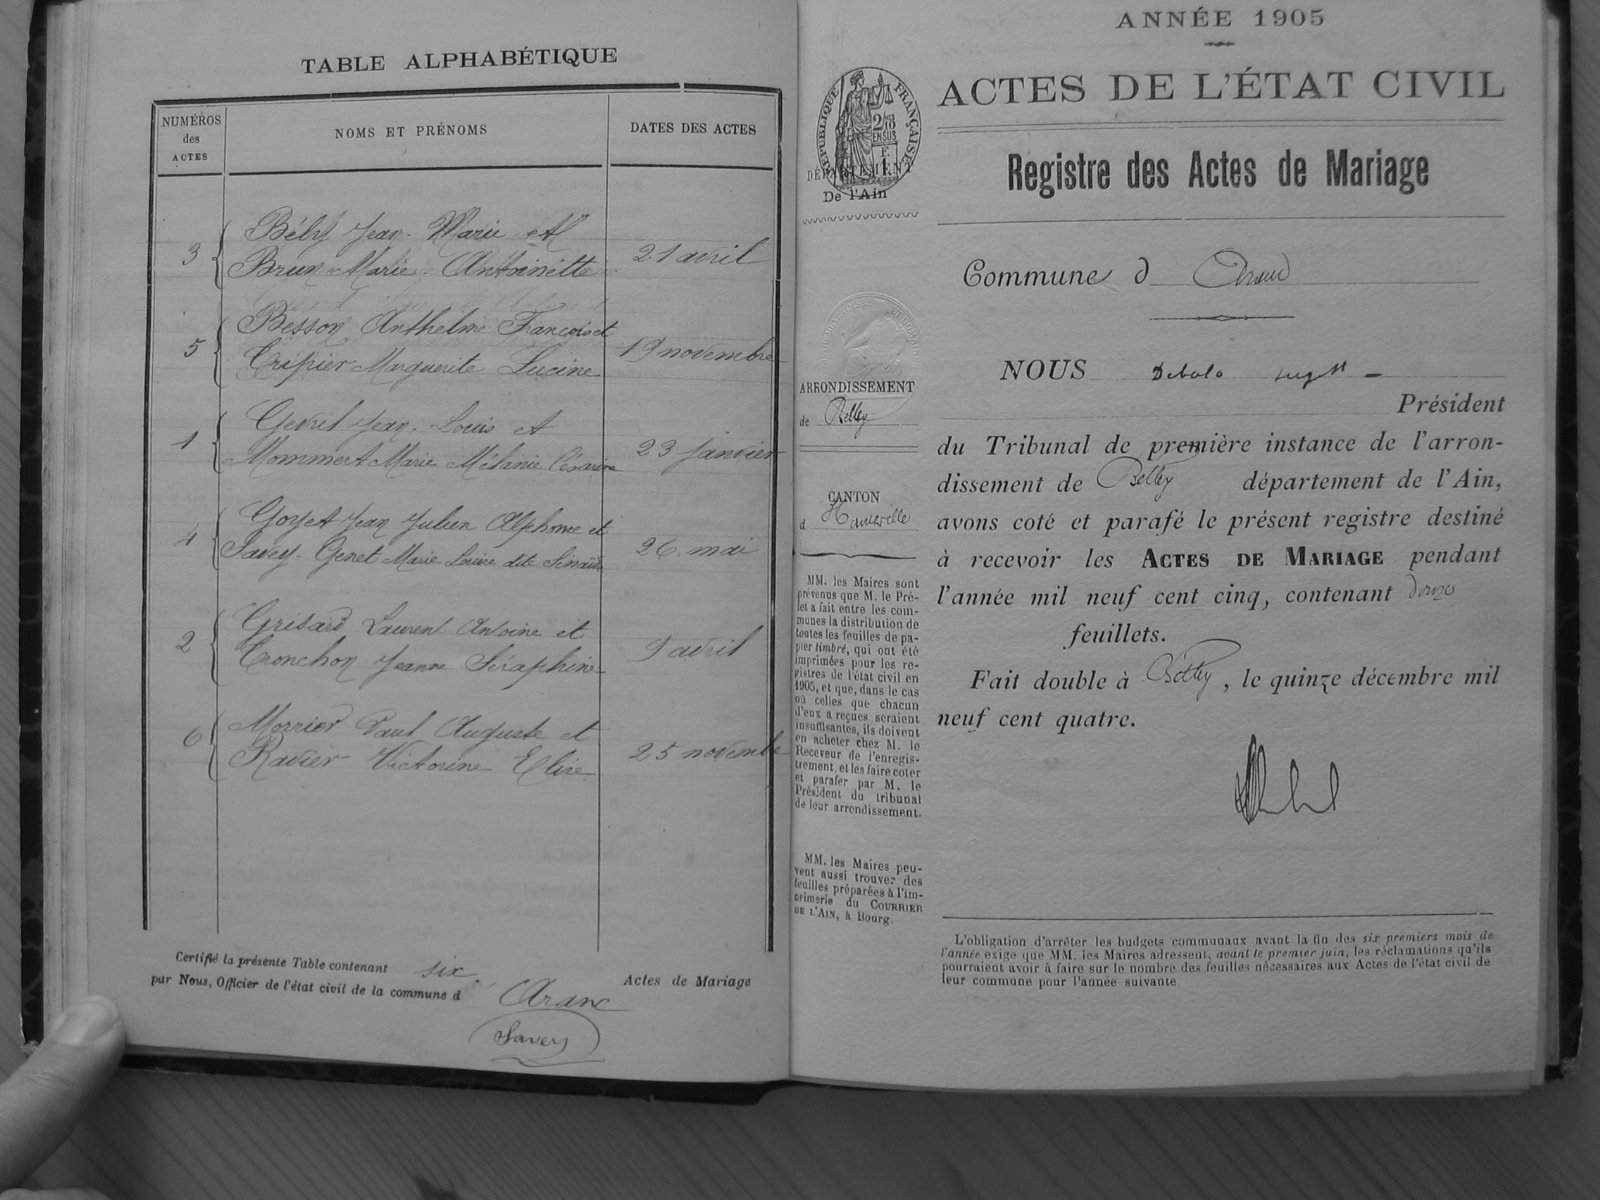 TABLE ALPHABÉTIQUE
NUMÉROS
des
ACTES
NOMS ET PRÉNOMS
DATES DES ACTES
3
Jean Marie et
Brun Marie Antoinette
21 avril
5
Besson Anthelme François et
Crépier Marguerite Lucine
19 novembre
1
Jean Louis et
Marie Mélanie Césarine
23 janvier
4
Goyet Jean Julien Alphonse et
Savey-Genet Marie Louise dite
26 mai
2
Grisard Laurent Antoine et
Tronchon Jeanne Séraphine
9 avril
6
Morrier Paul Auguste et
Ravier Victorine Elise
25 novembre
Certifié la présente Table contenant six Actes de Mariage
par Nous, Officier de l'état civil de la commune d' Aranc
Savey
ANNÉE 1905
ACTES DE L'ÉTAT CIVIL
Registre des Actes de Mariage
RÉPUBLIQUE FRANÇAISE
DÉPARTEMENT
De l'Ain
Commune d Aranc
NOUS
Président
du Tribunal de première instance de l'arron-
dissement de Belley département de l'Ain,
avons coté et parafé le présent registre destiné
à recevoir les ACTES DE MARIAGE pendant
l'année mil neuf cent cinq, contenant douze
feuillets.
Fait double à Belley, le quinze décembre mil
neuf cent quatre.
ARRONDISSEMENT
de Belley
CANTON
d Hauteville
MM. les Maires sont
prévenus que M. le Pré-
fet a fait entre les com-
munes la distribution de
toutes les feuilles de pa-
pier timbré, qui ont été
imprimées pour les re-
gistres de l'état civil en
1905, et que, dans le cas
où celles que chacun
d'eux a reçues seraient
insuffisantes, ils doivent
en acheter chez M. le
Receveur de l'enregis-
trement, et les faire coter
et parafer par M. le
Président du tribunal
de leur arrondissement.
MM. les Maires peu-
vent aussi trouver des
feuilles préparées à l'im-
primerie du COURRIER
DE L'AIN, à Bourg.
L'obligation d'arrêter les budgets communaux avant la fin des six premiers mois de
l'année exige que MM. les Maires adressent, avant le premier juin, les réclamations qu'ils
pourraient avoir à faire sur le nombre des feuilles nécessaires aux Actes de l'état civil de
leur commune pour l'année suivante